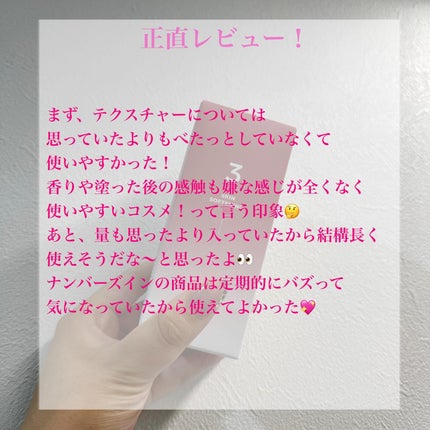 正直レビュー！
まず、テクスチャーについては
思っていたよりもべたっとしていなくて
使いやすかった！
香りや塗った後の感触も嫌な感じが全くなく
使いやすいコスメ！って言う印象🤔
あと、量も思ったより入っていたから結構長く
使えそうだな〜と思ったよ👀
ナンバーズインの商品は定期的にバズって
気になっていたから使えてよかった💖
3
SKIN